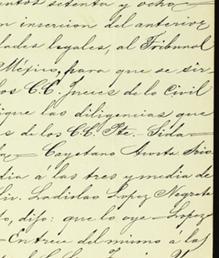 entos setenta y ocho
n insercion del anterior
dades legales, al Tribunal
Méjico, para que se sir
los C.C. Jueces de lo Civil
ique las diligencias que
s de los C.C. Pte.
Cayetano
dia á las tres y media de
Lic. Ladislao Lopez Negrete
to, dijo: que lo oye Lopez
Entre del mismo á las